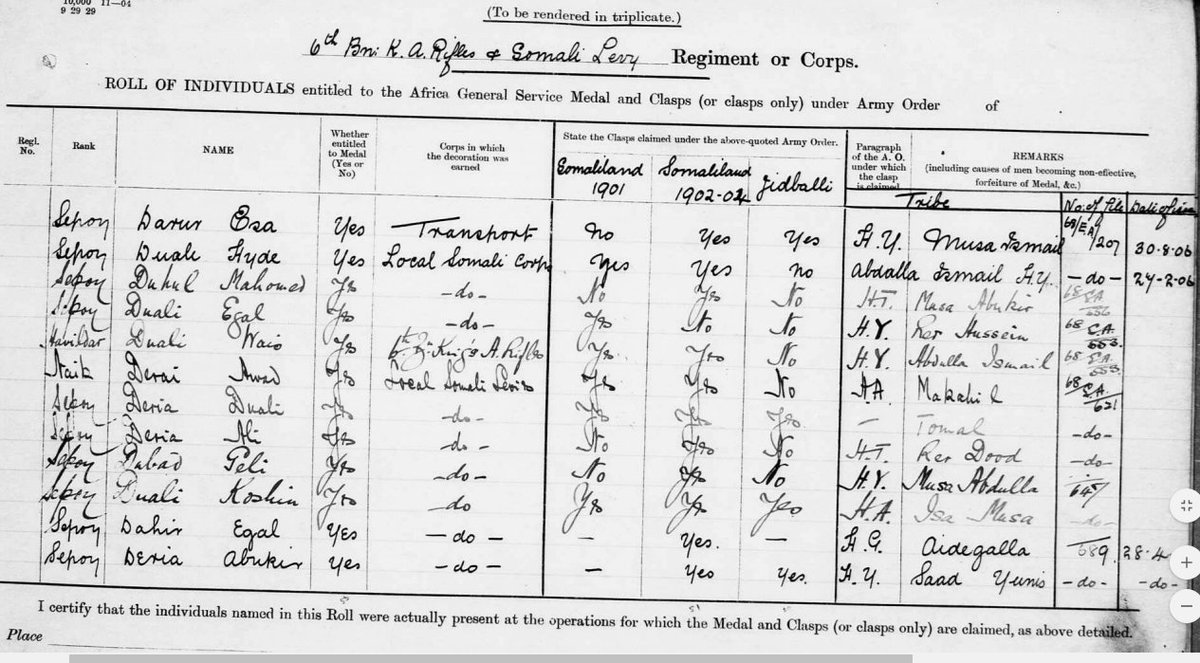 10,000 11—04
9 29 29
(To be rendered in triplicate.)
6th Bn: K. A. Rifles & Somali Levy Regiment or Corps.
ROLL OF INDIVIDUALS entitled to the Africa General Service Medal and Clasps (or clasps only) under Army Order of
Regl. No. Rank NAME Whether entitled to Medal (Yes or No) Corps in which the decoration was earned State the Clasps claimed under the above-quoted Army Order. Paragraph of the A. O. under which the clasp is claimed REMARKS (including causes of men becoming non-effective, forfeiture of Medal, &c.)
Somaliland 1901 Somaliland 1902-04 Jidballi Tribe No: of file Date of issue
Sepoy Darur Esa Yes Transport No Yes Yes H.Y. Musa Ismail 68/E.A/207 30-8-06
Sepoy Duale Hyde Yes Local Somali Corps Yes Yes No Abdalla Ismail H.Y. -do- 24-2-06
Sepoy Duhul Mahomed Yes -do- No Yes No H.T. Musa Abukir 68
Sepoy Duali Egal Yes -do- Yes No No H.Y. Rer Hussein 68
Havildar Duali Wais Yes 6th Bn King's A. Rifles Yes Yes No H.Y. Abdulla Ismail 68
Naik Derai Awad Yes Local Somali Levies Yes Yes No A.A. Makahil 68
Sepoy Deria Duali Yes -do- Yes Yes Yes — Tomal -do-
Sepoy Deria Ali Yes -do- No Yes No H.T. Rer Dood -do-
Sepoy Dabad Yes -do- No Yes No H.Y. Musa Abdulla
Sepoy Duali Koshin Yes -do Yes Yes Yes H.A. Isa Musa -do-
Sepoy Dahir Egal Yes -do- — Yes. — H.G. Aidegalla 689 28-4
Sepoy Deria Abukir Yes -do- — Yes Yes. H.Y. Saad Yunis -do- -do-
I certify that the individuals named in this Roll were actually present at the operations for which the Medal and Clasps (or clasps only) are claimed, as above detailed.
Place